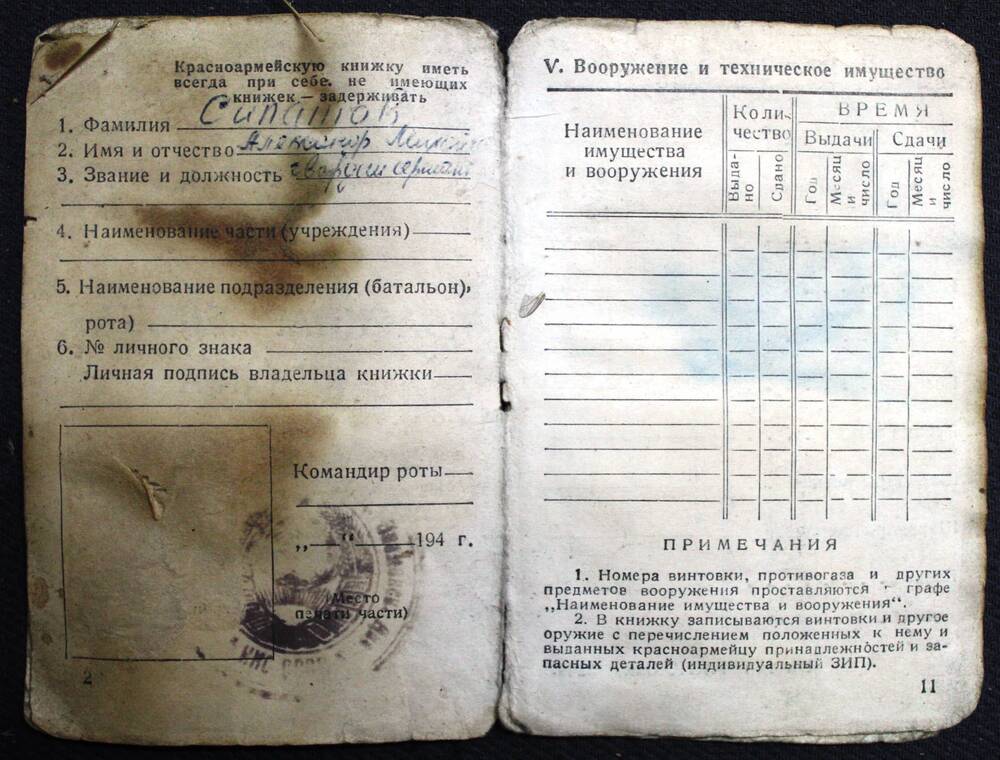 Красноармейскую книжку иметь
всегда при себе. не имеющих
книжек — задерживать
1. Фамилия
2. Имя и отчество Александр
3. Звание и должность гвардии сержант
4. Наименование части (учреждения)
5. Наименование подразделения (батальон),
рота)
6. № личного знака
Личная подпись владельца книжки
Командир роты
„ “ 194 г.
(Место
печати части)
2
V. Вооружение и техническое имущество
Наименование
имущества
и вооружения
Коли-
чество
Выда-
но
Сдано
ВРЕМЯ
Выдачи
Сдачи
Год
Месяц
и
число
Год
Месяц
и
число
ПРИМЕЧАНИЯ
1. Номера винтовки, противогаза и других
предметов вооружения проставляются графе
„Наименование имущества и вооружения“.
2. В книжку записываются винтовки и другое
оружие с перечислением положенных к нему и
выданных красноармейцу принадлежностей и за-
пасных деталей (индивидуальный ЗИП).
11